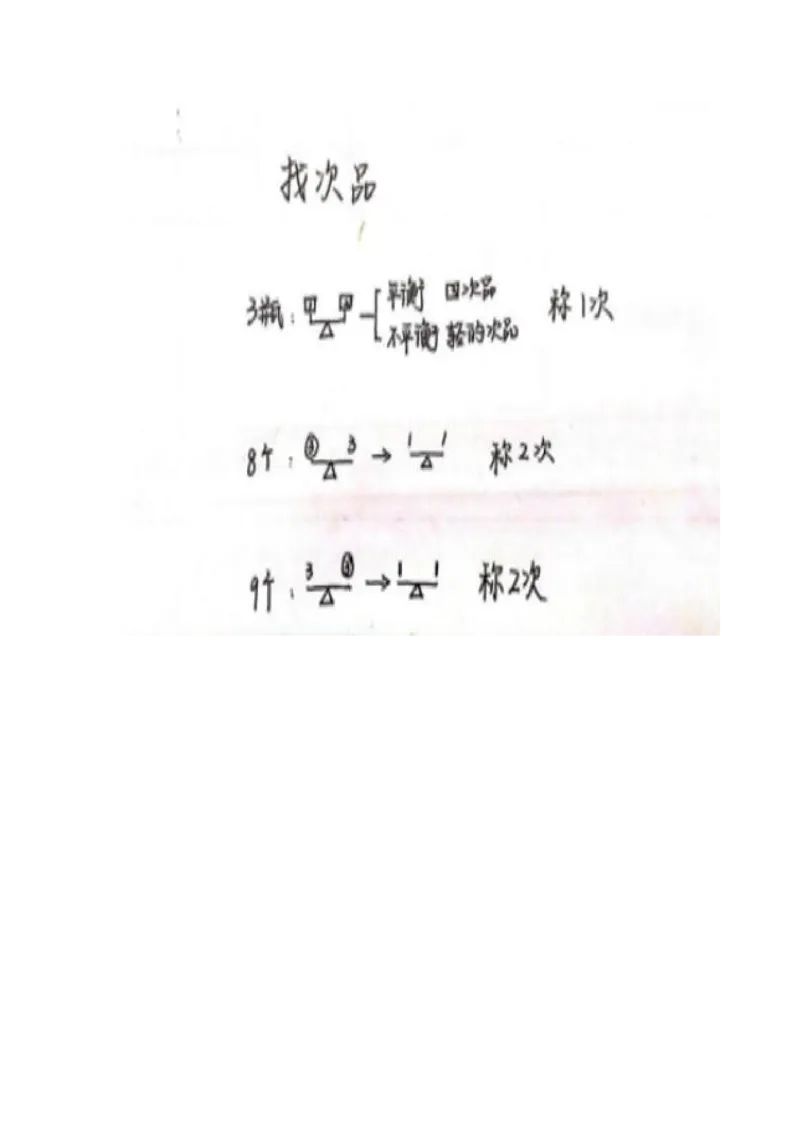 找次品
3瓶: 平衡 次品 称1次
不平衡 轻的次品
8个: ③ 3 → 1 1 称2次
9个: 3 ③ → 1 1 称2次